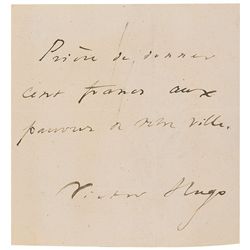 Prière de donner
cent francs aux
pauvres de votre ville.
Victor Hugo